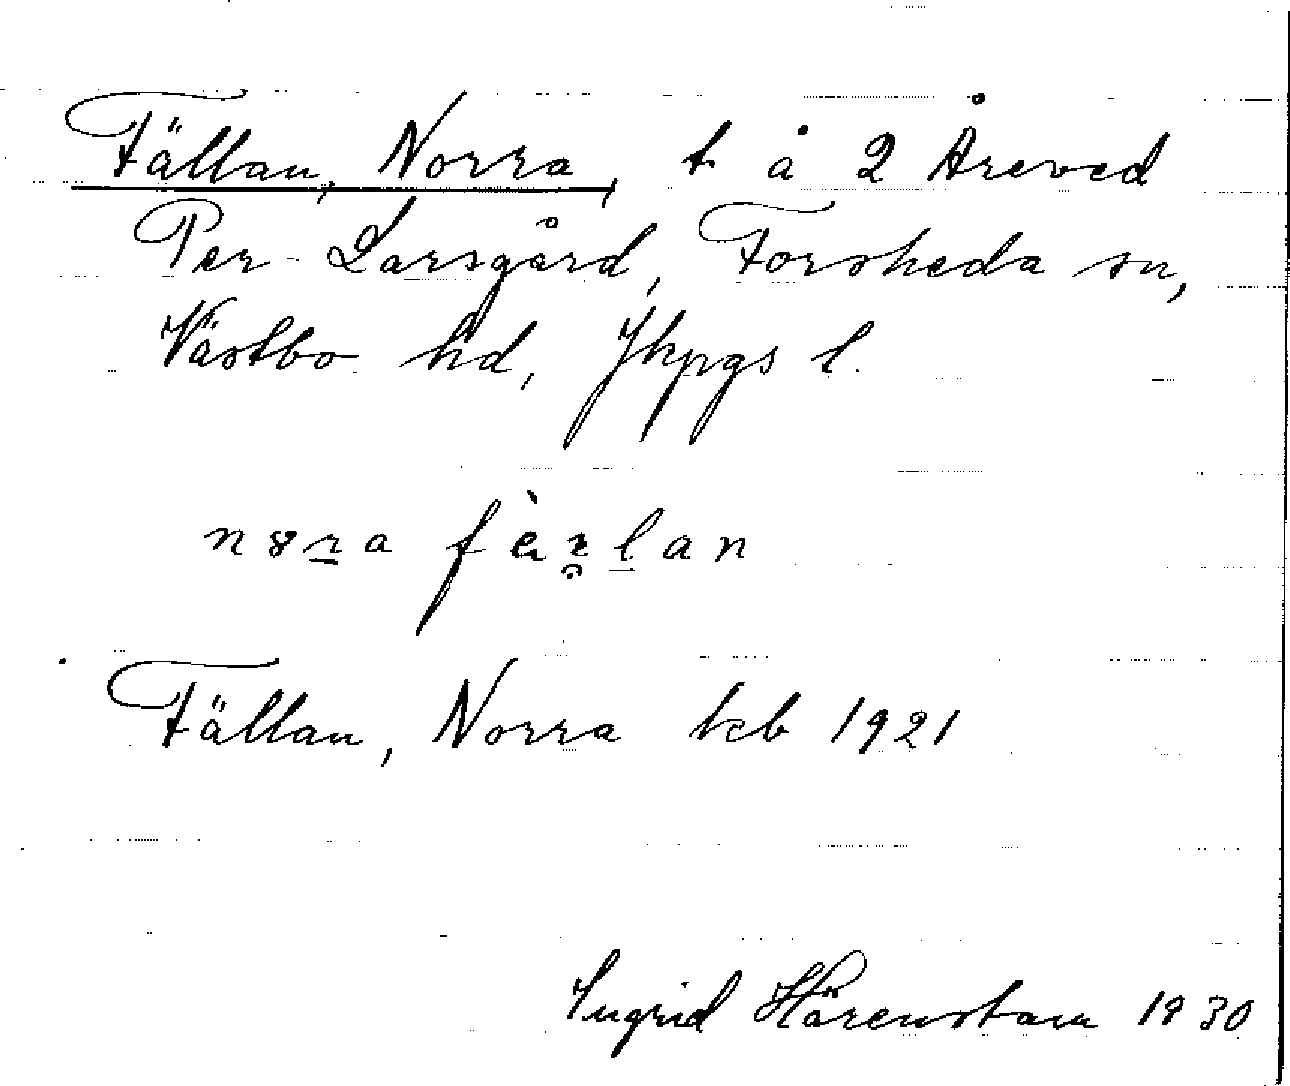 Fällan, Norra, t å 2 Åreved
Per-Larsgård, Forsheda sn,
Västbo hd, Jkpgs l.
Fällan, Norra kcb 1921
Ingrid Härenstam 1930